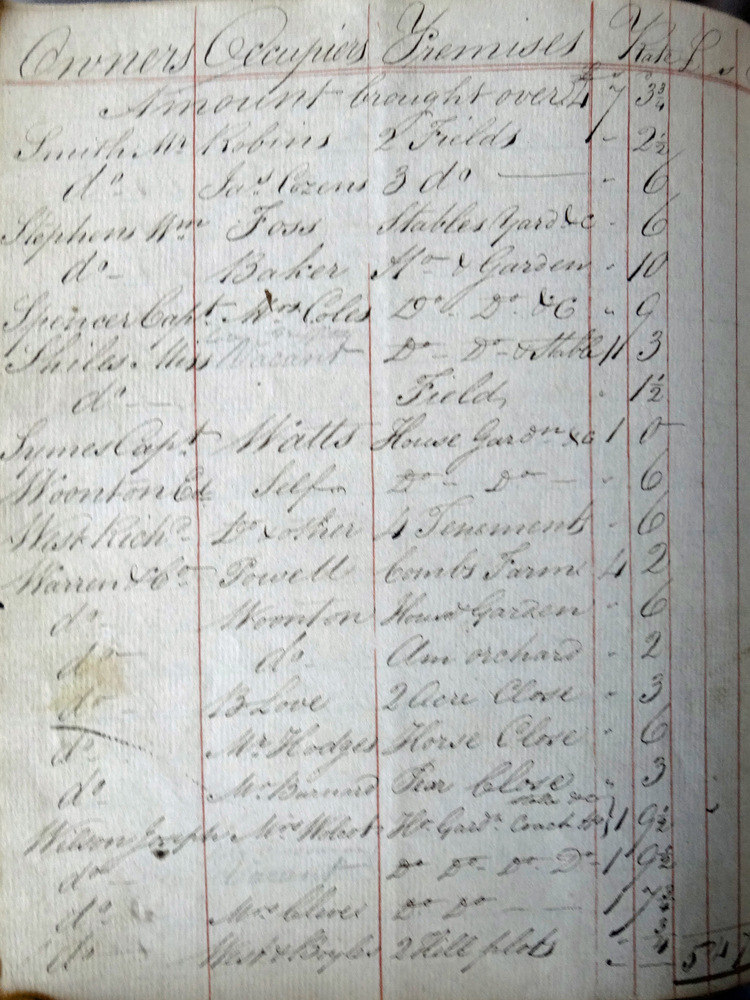 Owners Occupiers Premises Rate £ s
Amount brought over £4 7 3¾
Smith Mr Robins 2 Fields - 2½
do Jas Cozens 3 do - 6
Stephens Wm Foss Stables Yard &c - 6
do Baker Ho & Garden - 10
Spencer Capt Mrs Coles Do Do &C - 9
Shiles Miss Vacant Do Do & Stable 1 3
do Field - 1½
Symes Capt Watts House Gardn &c 1 0
Woonton Ed Self Do Do - 6
West Richd Do & other 4 Tenements - 6
Warren & Co Powell Combs Farm 4 2
do Woonton House Garden - 6
do do Am orchard - 2
do B Love 2 Acre Close - 3
do Mr Hodges Horse Close - 6
do Mr Barnard Pear Close - 3
Wilson Joseph Mrs Ho Gardn Coach Ho 1 9½
do Vacant Do Do Do Do 1 9½
do Mrs Clives Do Do 1
do West & Boyles 2 Hill plots -